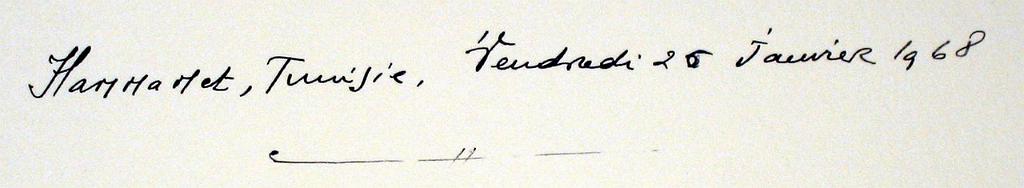 Hammamet, Tunisie, Vendredi 26 Janvier 1968